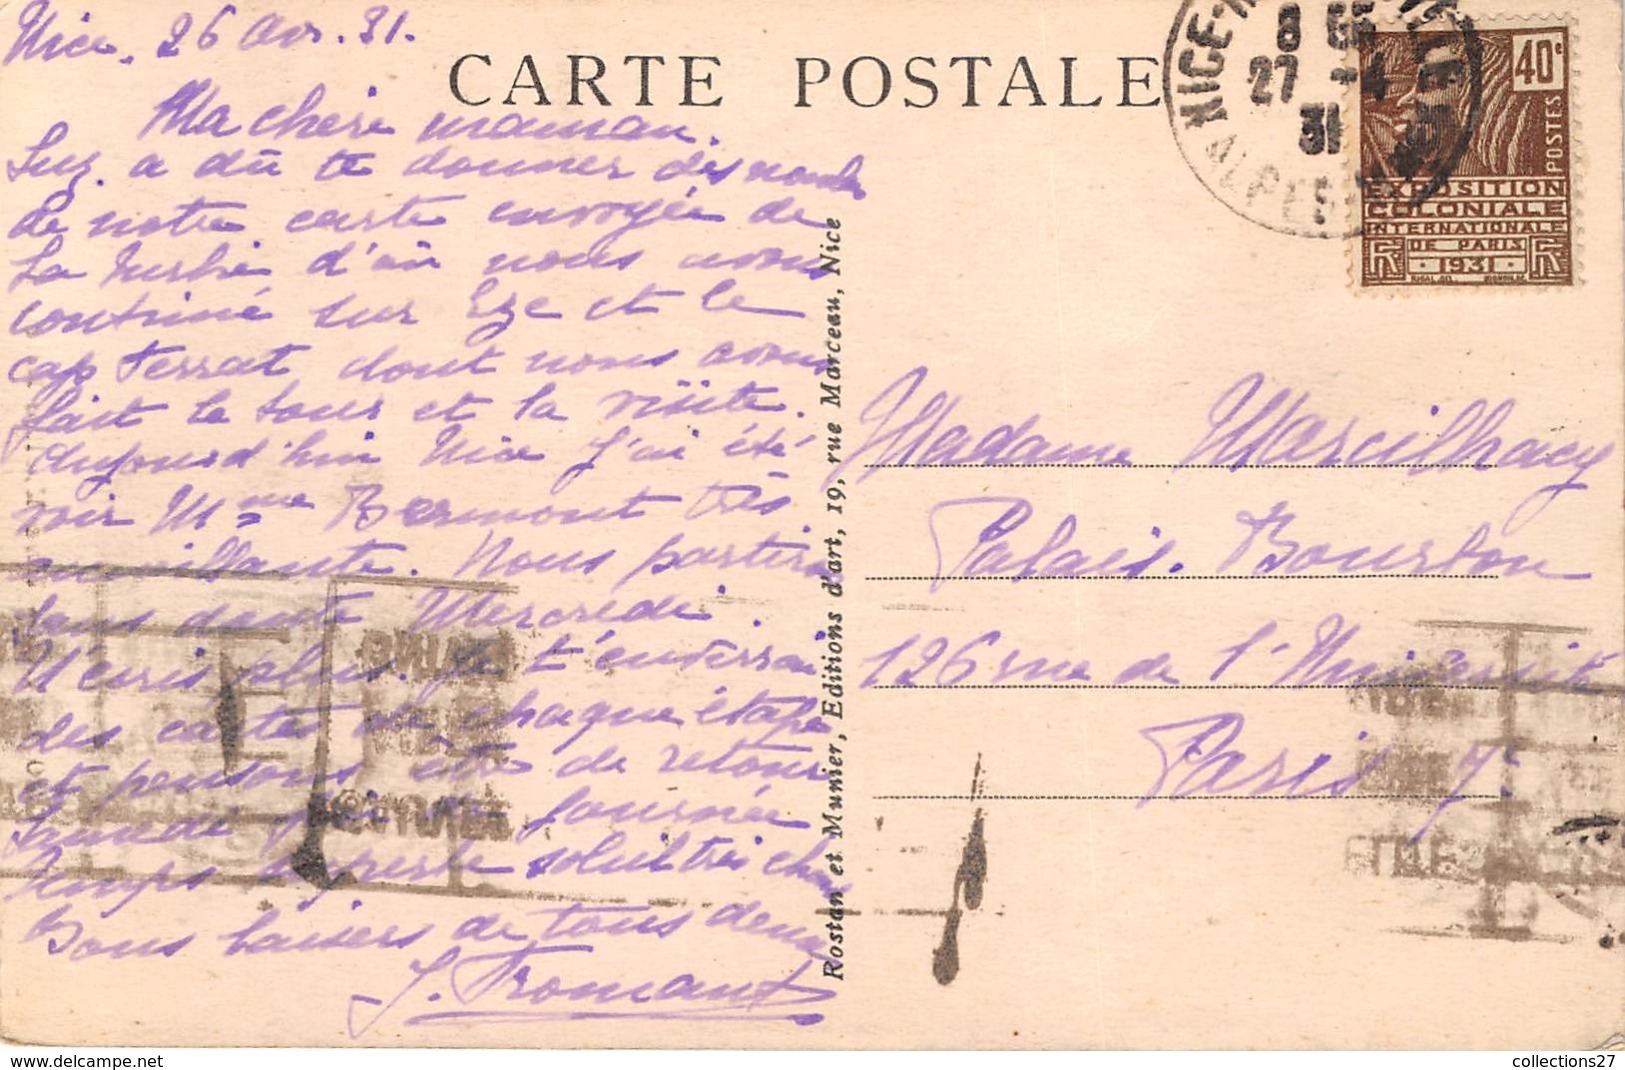 Nice. 26 Avr. 31.
CARTE POSTALE
Ma chère maman.
Suz. a dû te donner des nouvelles
de notre carte envoyée de
La Turbie d'où nous avons
continué sur Eze et le
cap Ferrat dont nous avons
fait le tour et la visite.
Aujourd'hui Nice J'ai été
voir Mme Bermont très
accueillante. Nous partirons
sans doute Mercredi.
N'écris plus. Je t'enverrai
des cartes de chaque étape
et pensons être de retour
Samedi journée
Temps superbe soleil très chaud
Bons baisers de tous deux
J. Fromant
Rostan et Munier, Editions d'art, 19, rue Marceau, Nice
NICE
8
27 -4
31
ALPES
40c
POSTES
EXPOSITION
COLONIALE
INTERNATIONALE
DE PARIS
1931
Madame Marcilhacy
Palais. Bourbon
126 rue de l'Université
Paris 7e
collections27